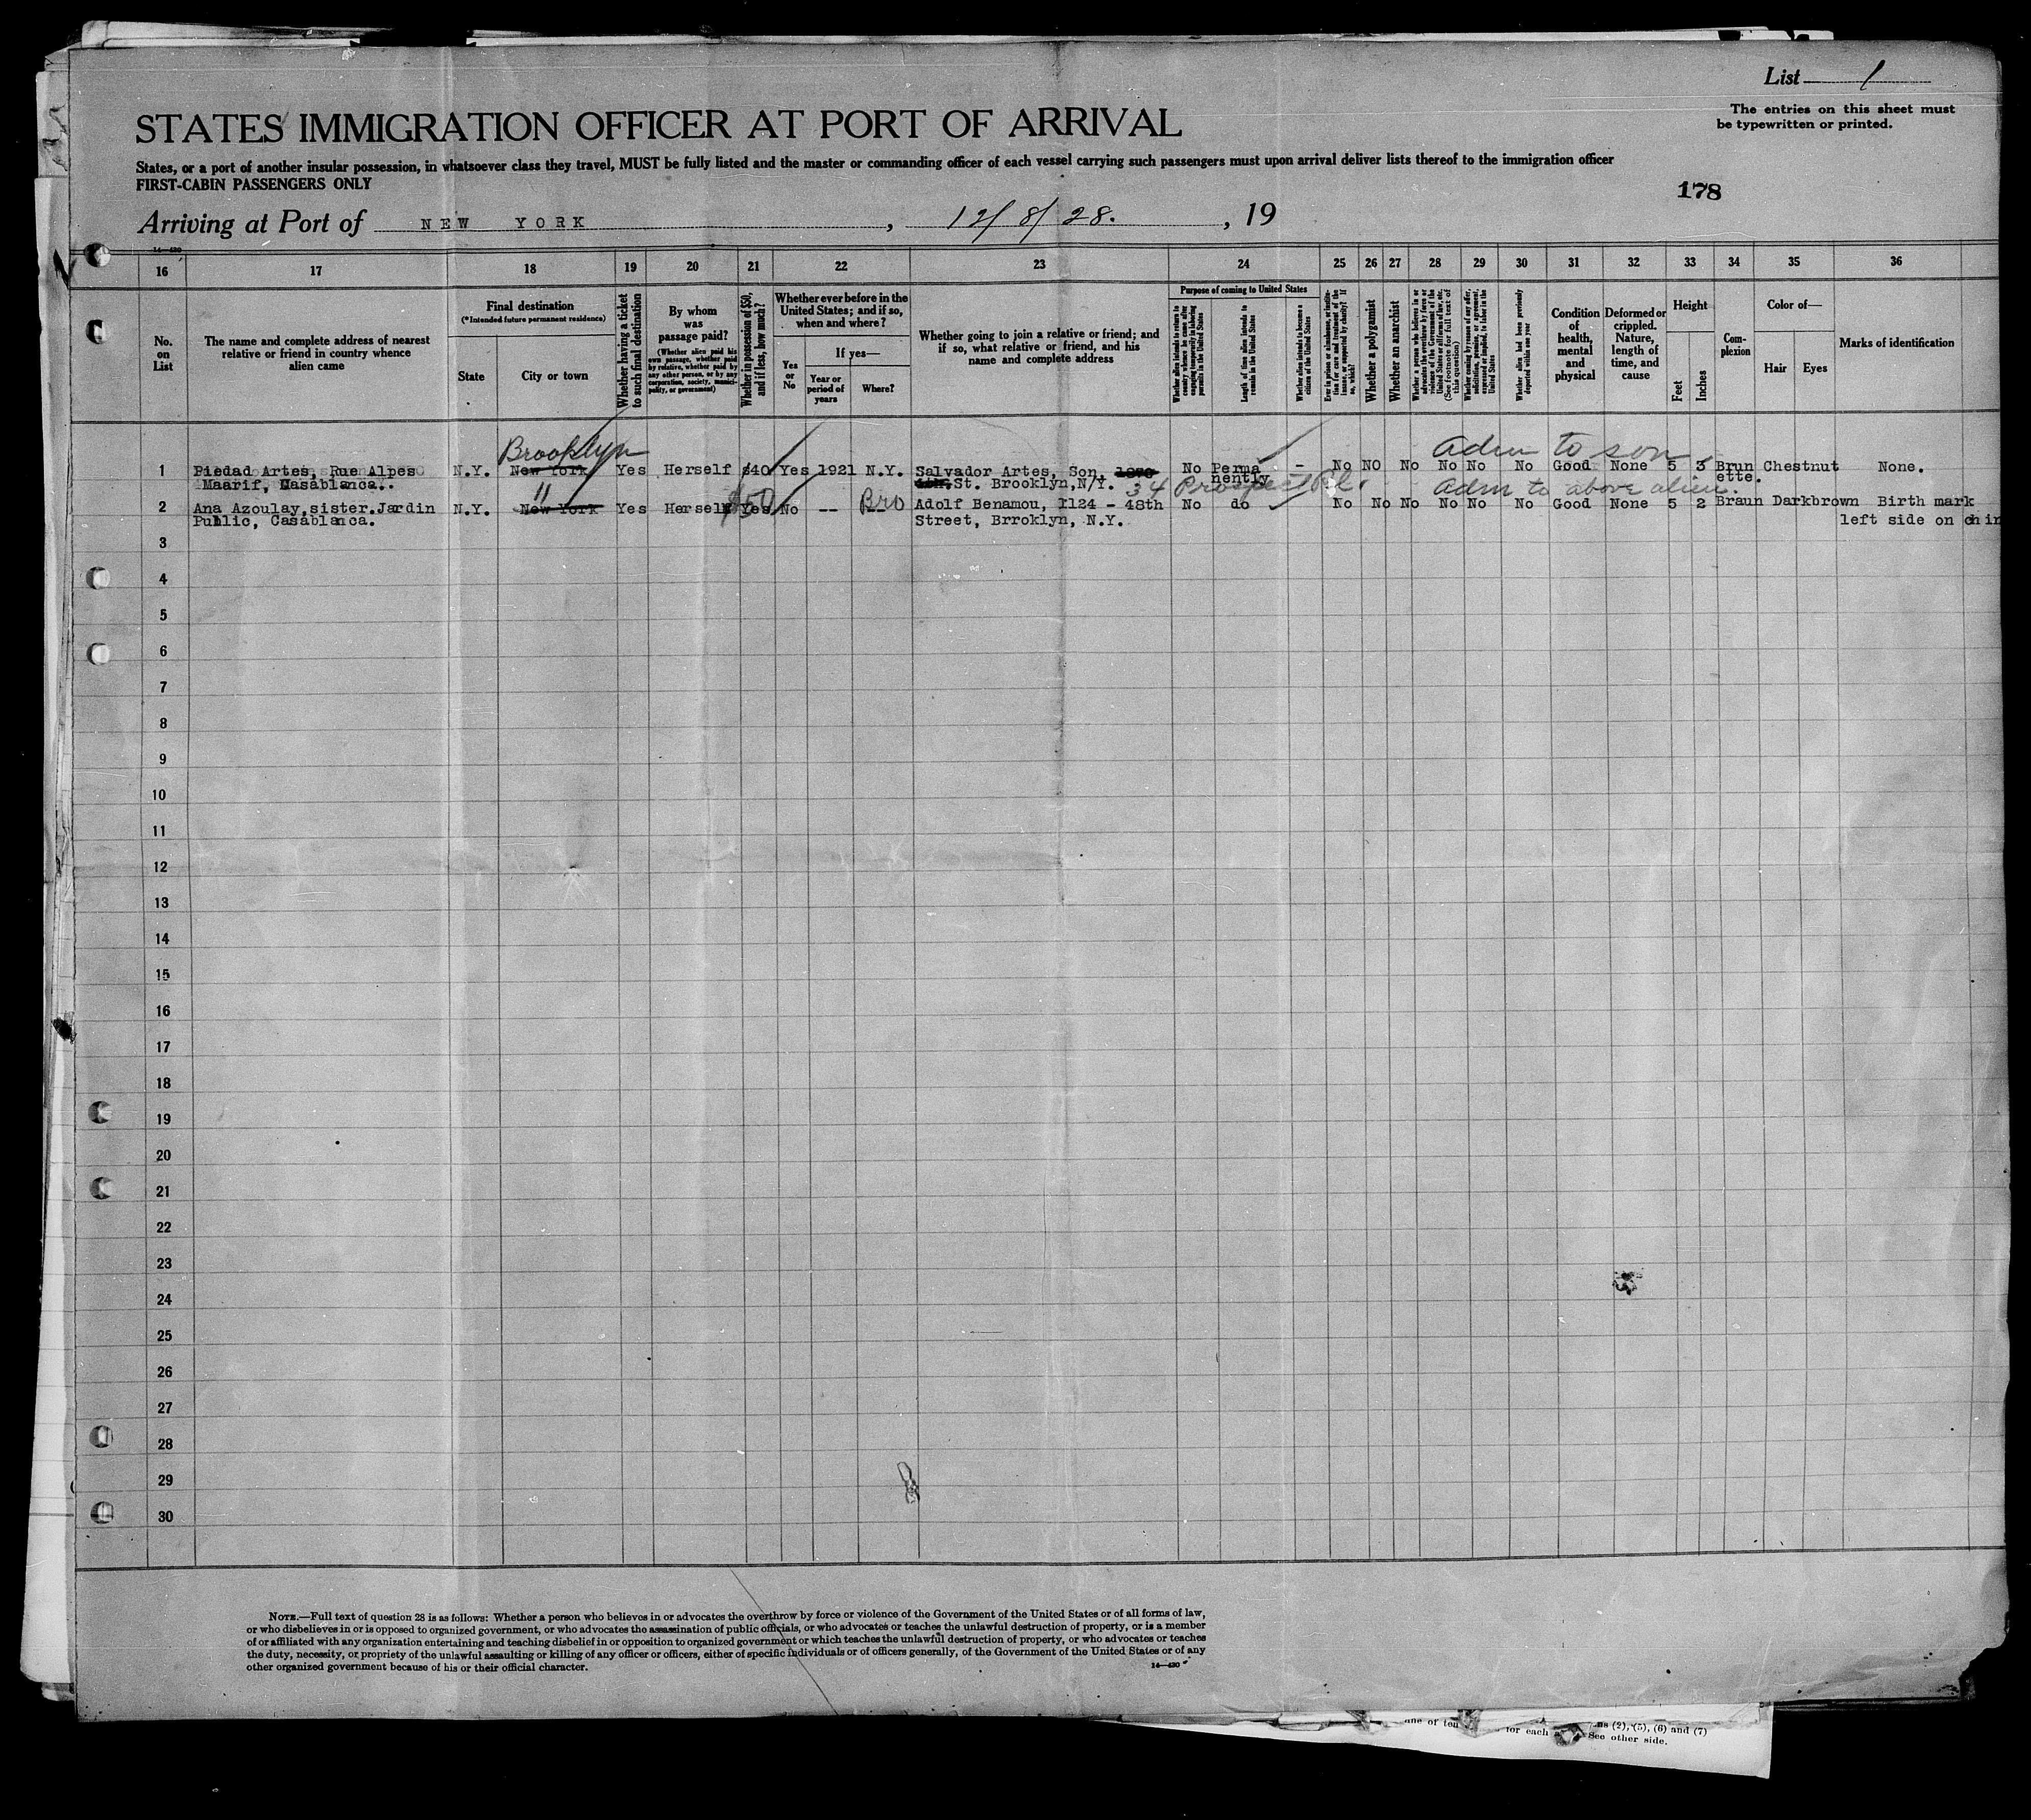 List 1
The entries on this sheet must
be typewritten or printed.
STATES IMMIGRATION OFFICER AT PORT OF ARRIVAL
States, or a port of another insular possession, in whatsoever class they travel, MUST be fully listed and the master or commanding officer of each vessel carrying such passengers must upon arrival deliver lists thereof to the immigration officer
FIRST-CABIN PASSENGERS ONLY
178
Arriving at Port of NEW YORK, 12/8/28., 19
14—430
16 17 18 19 20 21 22 23 24 25 26 27 28 29 30 31 32 33 34 35 36
No.
on
List
The name and complete address of nearest
relative or friend in country whence
alien came
Final destination
(*Intended future permanent residence)
State
City or town
Whether having a ticket
to such final destination
By whom
was
passage paid?
(Whether alien paid his
own passage, whether paid
by relative, whether paid by
any other person, or by any
corporation, society, munici-
pality, or government)
Whether in possession of $50,
and if less, how much?
Whether ever before in the
United States; and if so,
when and where?
Yes
or
No
If yes—
Year or
period of
years
Where?
Whether going to join a relative or friend; and
if so, what relative or friend, and his
name and complete address
Purpose of coming to United States
Whether alien intends to return to
country whence he came after
engaging temporarily in laboring
pursuits in the United States
Length of time alien intends to
remain in the United States
Whether alien intends to become a
citizen of the United States
Ever in prison or almshouse, or institu-
tion for care and treatment of the
insane, or supported by charity? If
so, which?
Whether a polygamist
Whether an anarchist
Whether a person who believes in or
advocates the overthrow by force or
violence of the Government of the
United States or all forms of law, etc.
(See footnote for full text of
this question)
Whether coming by reason of any offer,
solicitation, promise, or agreement,
expressed or implied, to labor in the
United States
Whether alien had been previously
deported within one year
Condition
of
health,
mental
and
physical
Deformed or
crippled.
Nature,
length of
time, and
cause
Height
Feet
Inches
Com-
plexion
Color of—
Hair
Eyes
Marks of identification
Brooklyn
adm to son
1 Piedad Artes, Rue Alpes N.Y. New York Yes Herself $40 Yes 1921 N.Y. Salvador Artes, Son, 1870 No Perma - No NO No No No No Good None 5 3 Brun Chestnut None.
Maarif, Casablanca.. St. Brooklyn, N.Y. nently ette.
" $50 Bro 34 Prospect Pl. adm to above alien.
2 Ana Azoulay, sister. Jardin N.Y. New York Yes Herself Yes No -- Adolf Benamou, 1124 - 48th No do No No No No No No Good None 5 2 Braun Darkbrown Birth mark
Public, Casablanca. Street, Brroklyn, N.Y. left side on chin
3
4
5
6
7
8
9
10
11
12
13
14
15
16
17
18
19
20
21
22
23
24
25
26
27
28
29
30
NOTE.—Full text of question 28 is as follows: Whether a person who believes in or advocates the overthrow by force or violence of the Government of the United States or of all forms of law,
or who disbelieves in or is opposed to organized government, or who advocates the assassination of public officials, or who advocates or teaches the unlawful destruction of property, or is a member
of or affiliated with any organization entertaining and teaching disbelief in or opposition to organized government or which teaches the unlawful destruction of property, or who advocates or teaches
the duty, necessity, or propriety of the unlawful assaulting or killing of any officer or officers, either of specific individuals or of officers generally, of the Government of the United States or of any
other organized government because of his or their official character.
14—430
of ten for each (2), (5), (6) and (7)
See other side.